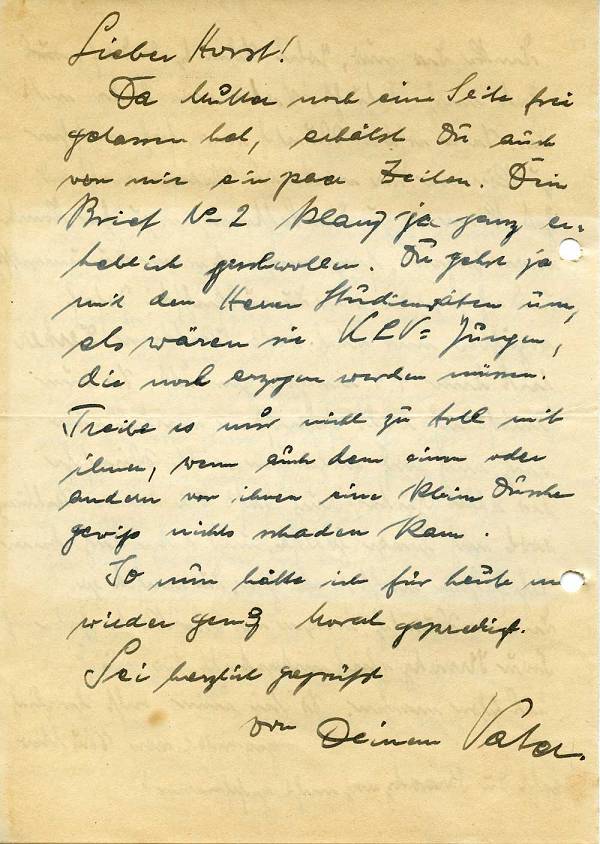 Lieber Horst!
Da Mutter noch eine Seite frei
gelassen hat, erhälst Du auch
von mir ein paar Zeilen. Dein
Brief No 2 klang ja ganz er-
heblich geschwollen. Du gehst ja
mit den Herren Studienräten um,
als wären sie KLV= Jungen,
die noch erzogen werden müssen.
Treibe es nur nicht zu toll mit
ihnen, wenn auch dem einen oder
andern von ihnen eine kleine Dusche
gewiß nichts schaden kann.
So nun hätte ich für heute
wieder genug Moral gepredigt.
Sei herzlich gegrüßt
von Deinem Vater.